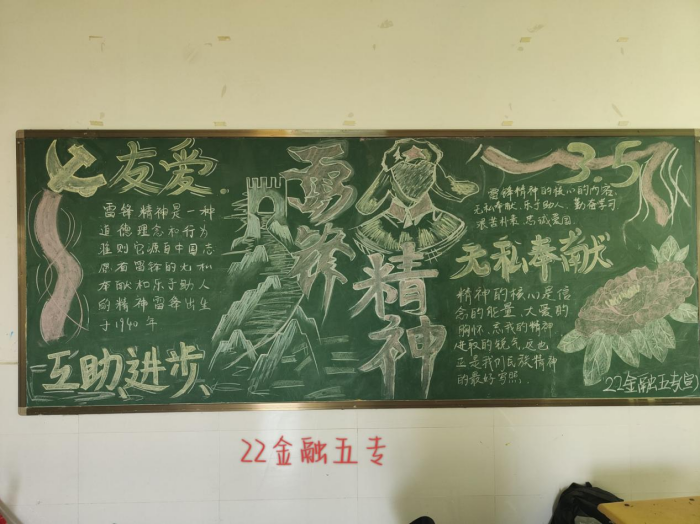 友爱
雷锋精神是一种
道德理念和行为
准则它源自中国志
愿者雷锋的无私
奉献和乐于助人
的精神雷锋出生
于1940年
互助进步
雷锋
精神
3.5
雷锋精神的核心的内容
无私奉献、乐于助人、勤奋学习
艰苫朴素、忠诚爱国
无私奉献
精神的核心是信
念的能量、大爱的
胸怀、忘我的精神
进取的锐气、这也
正是我们民族精神
的最好写照.
22金融五专(
22金融五专